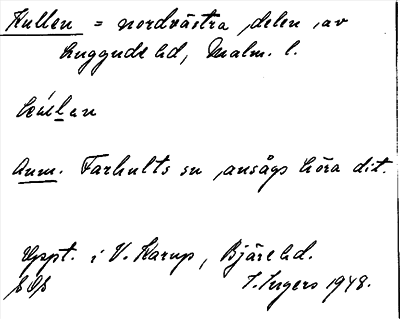 Kullen = nordvästra delen av
Luggude hd, Malm. l.
Anm. Farhults sn ansågs höra dit.
Uppt. i V. Karup, Bjäre hd.
I. Ingers 1948.